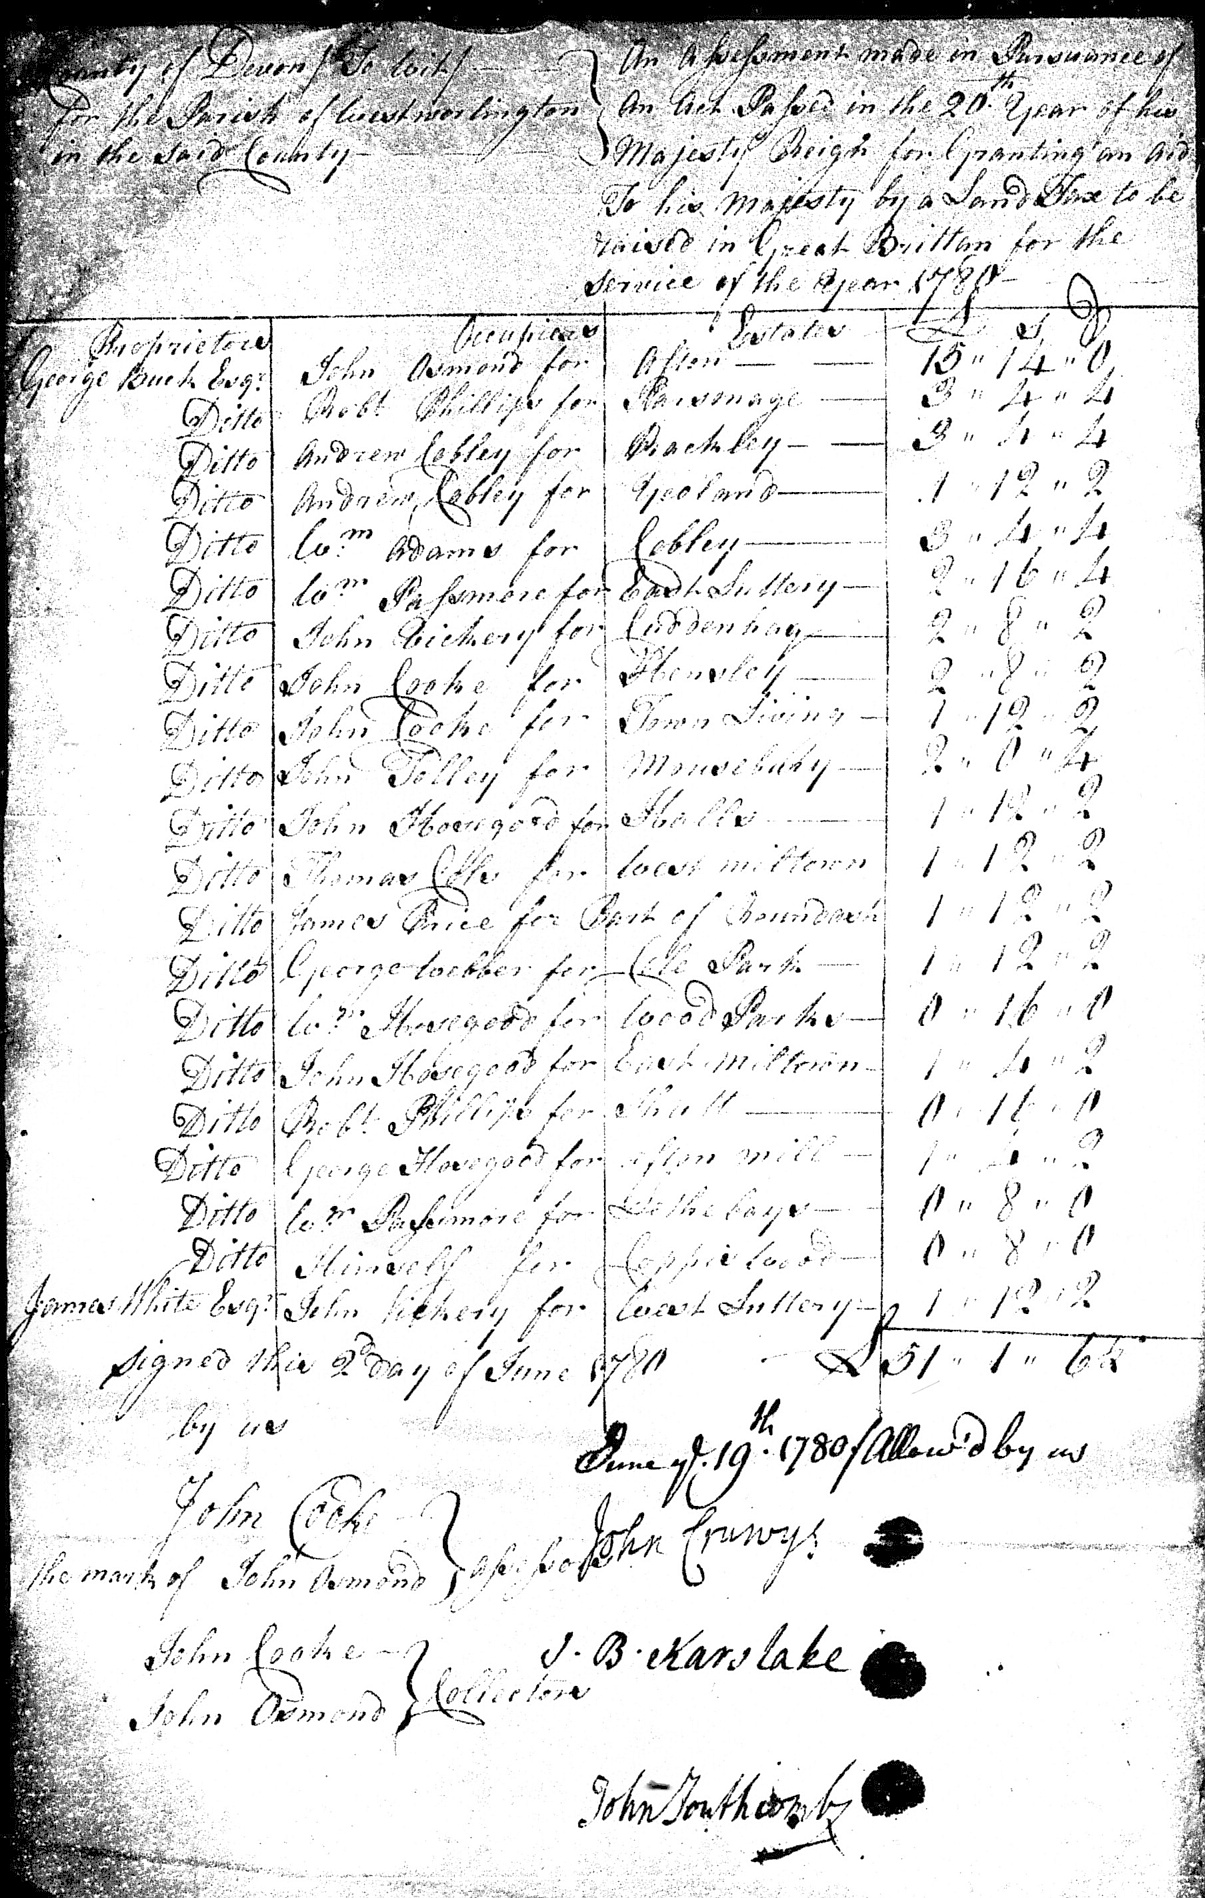 County of Devon / To Wit /
for the Parish of Westworlington
in the said County
An Assessment made in Pursuance of
An Act Passed in the 20th Year of his
Majesty Reign for Granting an Aid
To his Majesty by a Land Tax to be
raised in Great Brittan for the
Service of the Year 1780
Proprietors Occupiers Estates £ S D
George Buck Esqr. John Osmond for Afton 15 " 14 " 0
Ditto Robt Phillips for Parsonage 3 " 4 " 4
Ditto Andrew Cobley for Rackley 3 " 4 " 4
Ditto Andrew Cobley for Yeoland 1 " 12 " 2
Ditto Wm Adams for Cobley 3 " 4 " 4
Ditto Wm Passmore for East Luttery 2 " 16 " 4
Ditto John Vickery for Cuddenhay 2 " 8 " 2
Ditto John Cooke for Hensley 2 " 8 " 2
Ditto John Cooke for Town Living 1 " 12 " 2
Ditto John Tolley for Mouseberry 2 " 0 " 4
Ditto John Hosegood for Halls 1 " 12 " 2
Ditto Thomas for West miltown 1 " 12 " 2
Ditto James Price for Part of Roundash 1 " 12 " 2
Ditto George Webber for Cole Park 1 " 12 " 2
Ditto Wm Hosegood for Wood Parks 0 " 16 " 0
Ditto John Hosegood for East Miltown 1 " 4 " 2
Ditto Robt Phillips for 0 " 16 " 0
Ditto George Hosegood for Afton mill 1 " 4 " 2
Ditto Wm Passmore for 0 " 8 " 0
Ditto Himself for Coppis Wood 0 " 8 " 0
James White Esqr. John Vickery for West Luttery 1 " 12 " 2
Signed this 2d day of June 1780 £ 51 " 1 " 6
by us
June ye. 19th. 1780 / Allow'd by us
John Cooke
the mark of John Osmond Assessors
John Cruwys
John Cooke
John Osmond Collectors
J. B. Karslake
John Southcomb